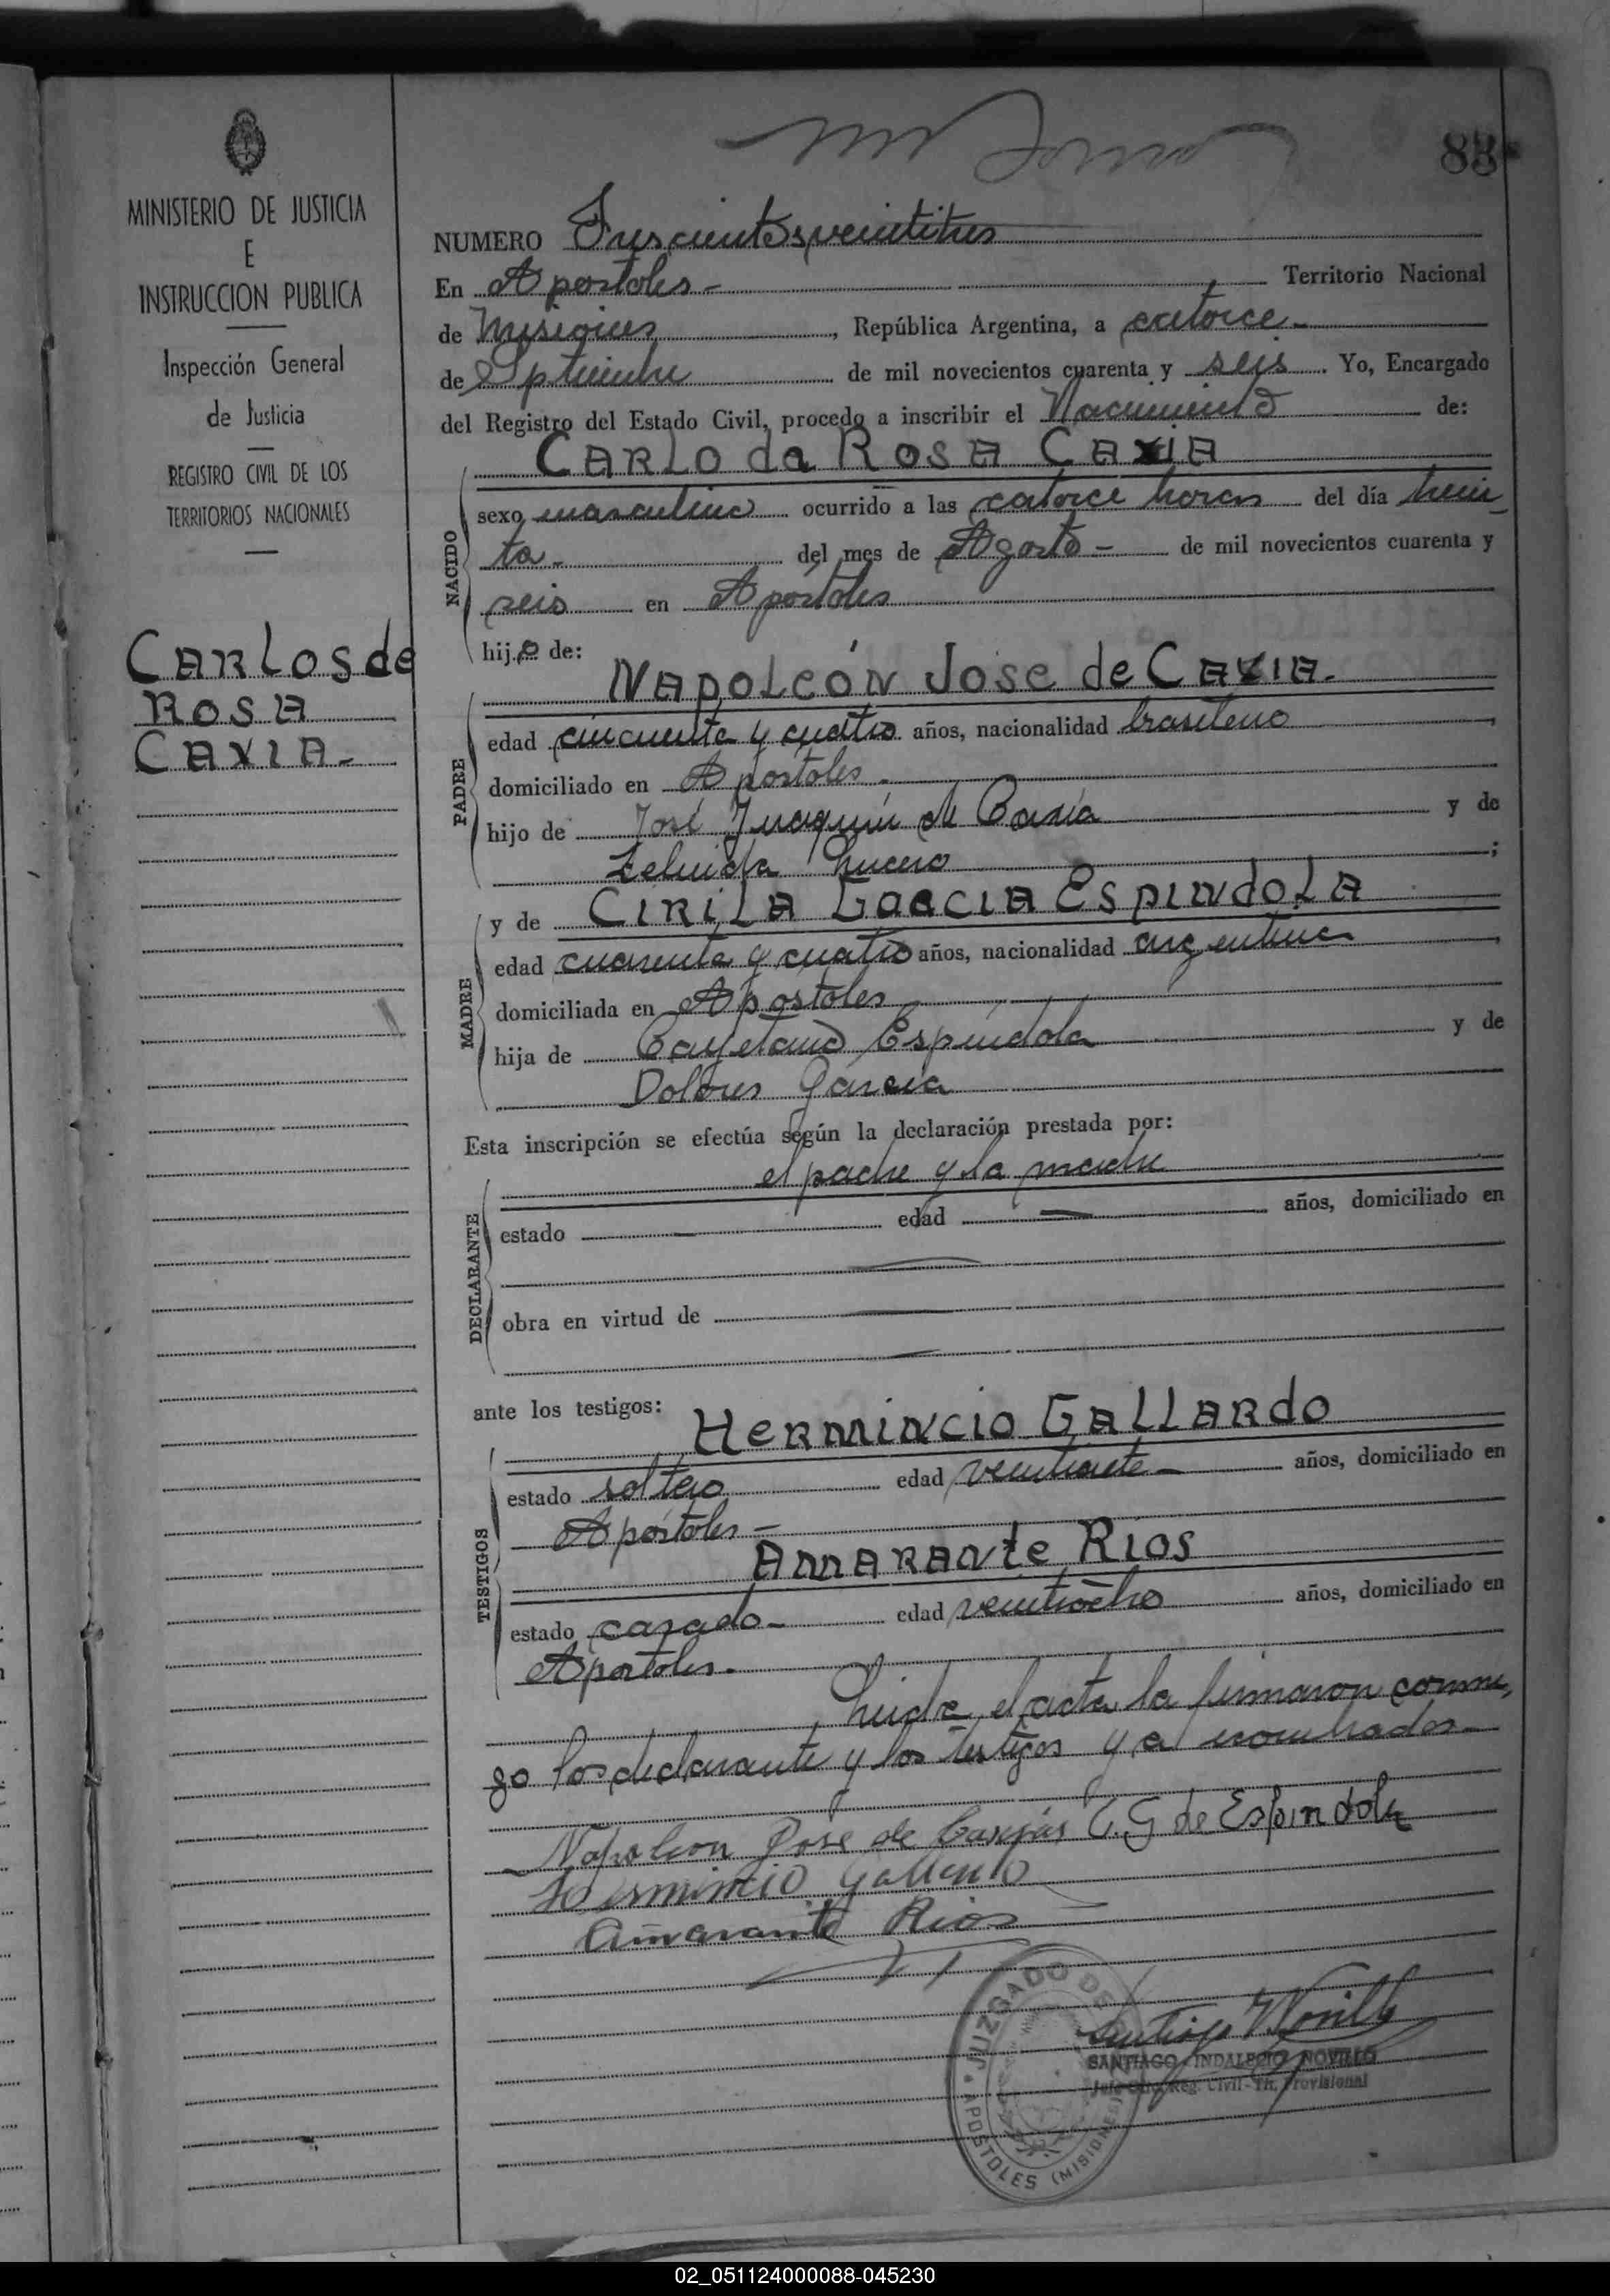 83
MINISTERIO DE JUSTICIA
E
INSTRUCCION PUBLICA
Inspección General
de Justicia
REGISTRO CIVIL DE LOS
TERRITORIOS NACIONALES
CARLOS de
ROSA
CAXIA.-
NUMERO Trescientos veintitres
En Apostoles - Territorio Nacional
de Misiones, República Argentina, a catorce -
de Septiembre de mil novecientos cuarenta y seis. Yo, Encargado
del Registro del Estado Civil, procedo a inscribir el Nacimiento de:
CARLO da ROSA CAXIA
NACIDO
sexo masculino ocurrido a las catorce horas del día trein-
ta - del mes de Agosto - de mil novecientos cuarenta y
seis en Apóstoles
hijo de:
PADRE
NAPOLEÓN JOSE de CAXIA.
edad cincuenta y cuatro años, nacionalidad brasileno
domiciliado en Apostoles.
hijo de José Juaquin de Caxia y de
Lucero;
MADRE
y de CIRILA GARCIA ESPINDOLA
edad cuarenta y cuatro años, nacionalidad argentina
domiciliada en Apostoles
hija de Cayetano Espindola y de
Dolores Garcia
Esta inscripción se efectúa según la declaración prestada por:
el padre y la madre
DECLARANTE
estado — edad — años, domiciliado en
obra en virtud de —
ante los testigos:
TESTIGOS
HERMINCIO GALLARDO
estado soltero edad veintisiete - años, domiciliado en
Apóstoles -
AMARANTE RIOS
estado casado - edad veintiocho años, domiciliado en
Apostoles.
Leida el acta la firmaron conmi,
go los declarante y los testigos ya nombrados -
Napoleon Jose de C. G de Espindola
Hermincio Gallardo
Amarante Rios
JUZGADO DE
APOSTOLES (MISIONES)
Santiago Novillo
SANTIAGO INDALECIO NOVILLO
Jefe Reg. Civil - Provisional
02_051124000088-045230